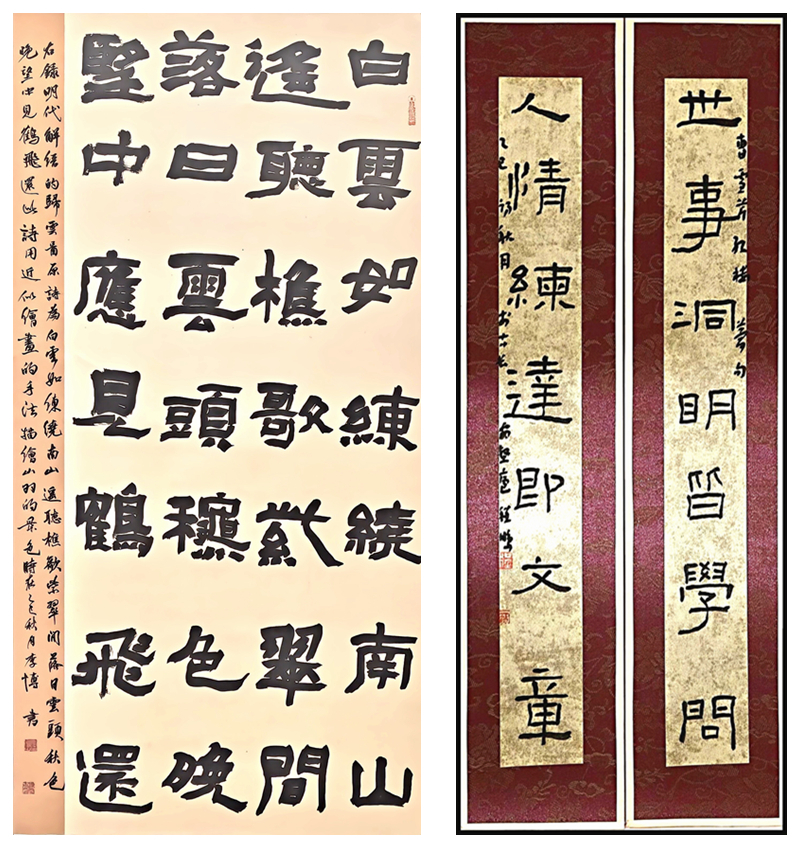 白雲如練繞南山
遙聽樵歌紫翠間
落日雲頭龝色晚
望中應見鶴飛還
右錄明代解縉的歸雲首原詩為白雲如練繞南山遙聽樵歌紫翠間落日雲頭秋色
晚望中見鶴飛還此詩用近似繪畫的手法描繪山羽的景色時在乙巳秋月李博書
世事洞明皆學問
曹雪芹紅樓夢句
人情練達即文章
乙巳初秋月